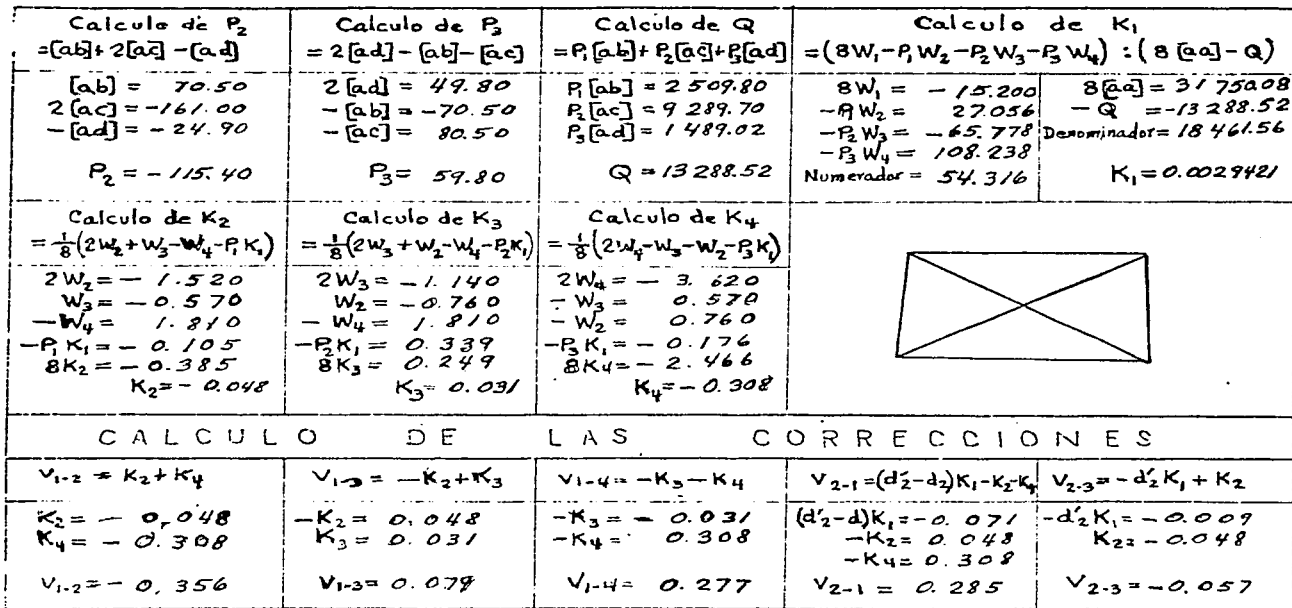 Calculo de P₂
=[ab]+2[ac]-[ad]
[ab] = 70.50
2[ac] = -161.00
-[ad] = -24.90
P₂ = -115.40
Calculo de P₃
= 2[ad]-[ab]-[ac]
2[ad] = 49.80
-[ab] = -70.50
-[ac] = 80.50
P₃ = 59.80
Calculo de Q
= P₁[ab]+P₂[ac]+P₃[ad]
P₁[ab] = 2 509.80
P₂[ac] = 9 289.70
P₃[ad] = 1 489.02
Q = 13 288.52
Calculo de K₁
=(8W₁-P₁W₂-P₂W₃-P₃W₄):(8[aa]-Q)
8W₁ = -15.200
-P₁W₂ = 27.056
-P₂W₃ = -65.778
-P₃W₄ = 108.238
Numerador = 54.316
8[aa] = 31 750.08
-Q = -13 288.52
Denominador = 18 461.56
K₁ = 0.0029421
Calculo de K₂
= 1/8(2W₂+W₃-W₄-P₁K₁)
2W₂ = -1.520
W₃ = -0.570
-W₄ = 1.810
-P₁K₁ = -0.105
8K₂ = -0.385
K₂ = -0.048
Calculo de K₃
= 1/8(2W₃+W₂-W₄-P₂K₁)
2W₃ = -1.140
W₂ = -0.760
-W₄ = 1.810
-P₂K₁ = 0.339
8K₃ = 0.249
K₃ = 0.031
Calculo de K₄
= 1/8(2W₄-W₃-W₂-P₃K₁)
2W₄ = -3.620
-W₃ = 0.570
-W₂ = 0.760
-P₃K₁ = -0.176
8K₄ = -2.466
K₄ = -0.308
CALCULO DE LAS CORRECCIONES
V₁₋₂ = K₂+K₄
K₂ = -0,048
K₄ = -0.308
V₁₋₂ = -0,356
V₁₋₃ = -K₂+K₃
-K₂ = 0.048
K₃ = 0.031
V₁₋₃ = 0.079
V₁₋₄ = -K₃-K₄
-K₃ = -0.031
-K₄ = 0.308
V₁₋₄ = 0.277
V₂₋₁ = (d'₂-d₂)K₁-K₂-K₄
(d'₂-d)K₁ = -0.071
-K₂ = 0.048
-K₄ = 0.308
V₂₋₁ = 0.285
V₂₋₃ = -d'₂K₁+K₂
-d'₂K₁ = -0.009
K₂ = -0.048
V₂₋₃ = -0.057